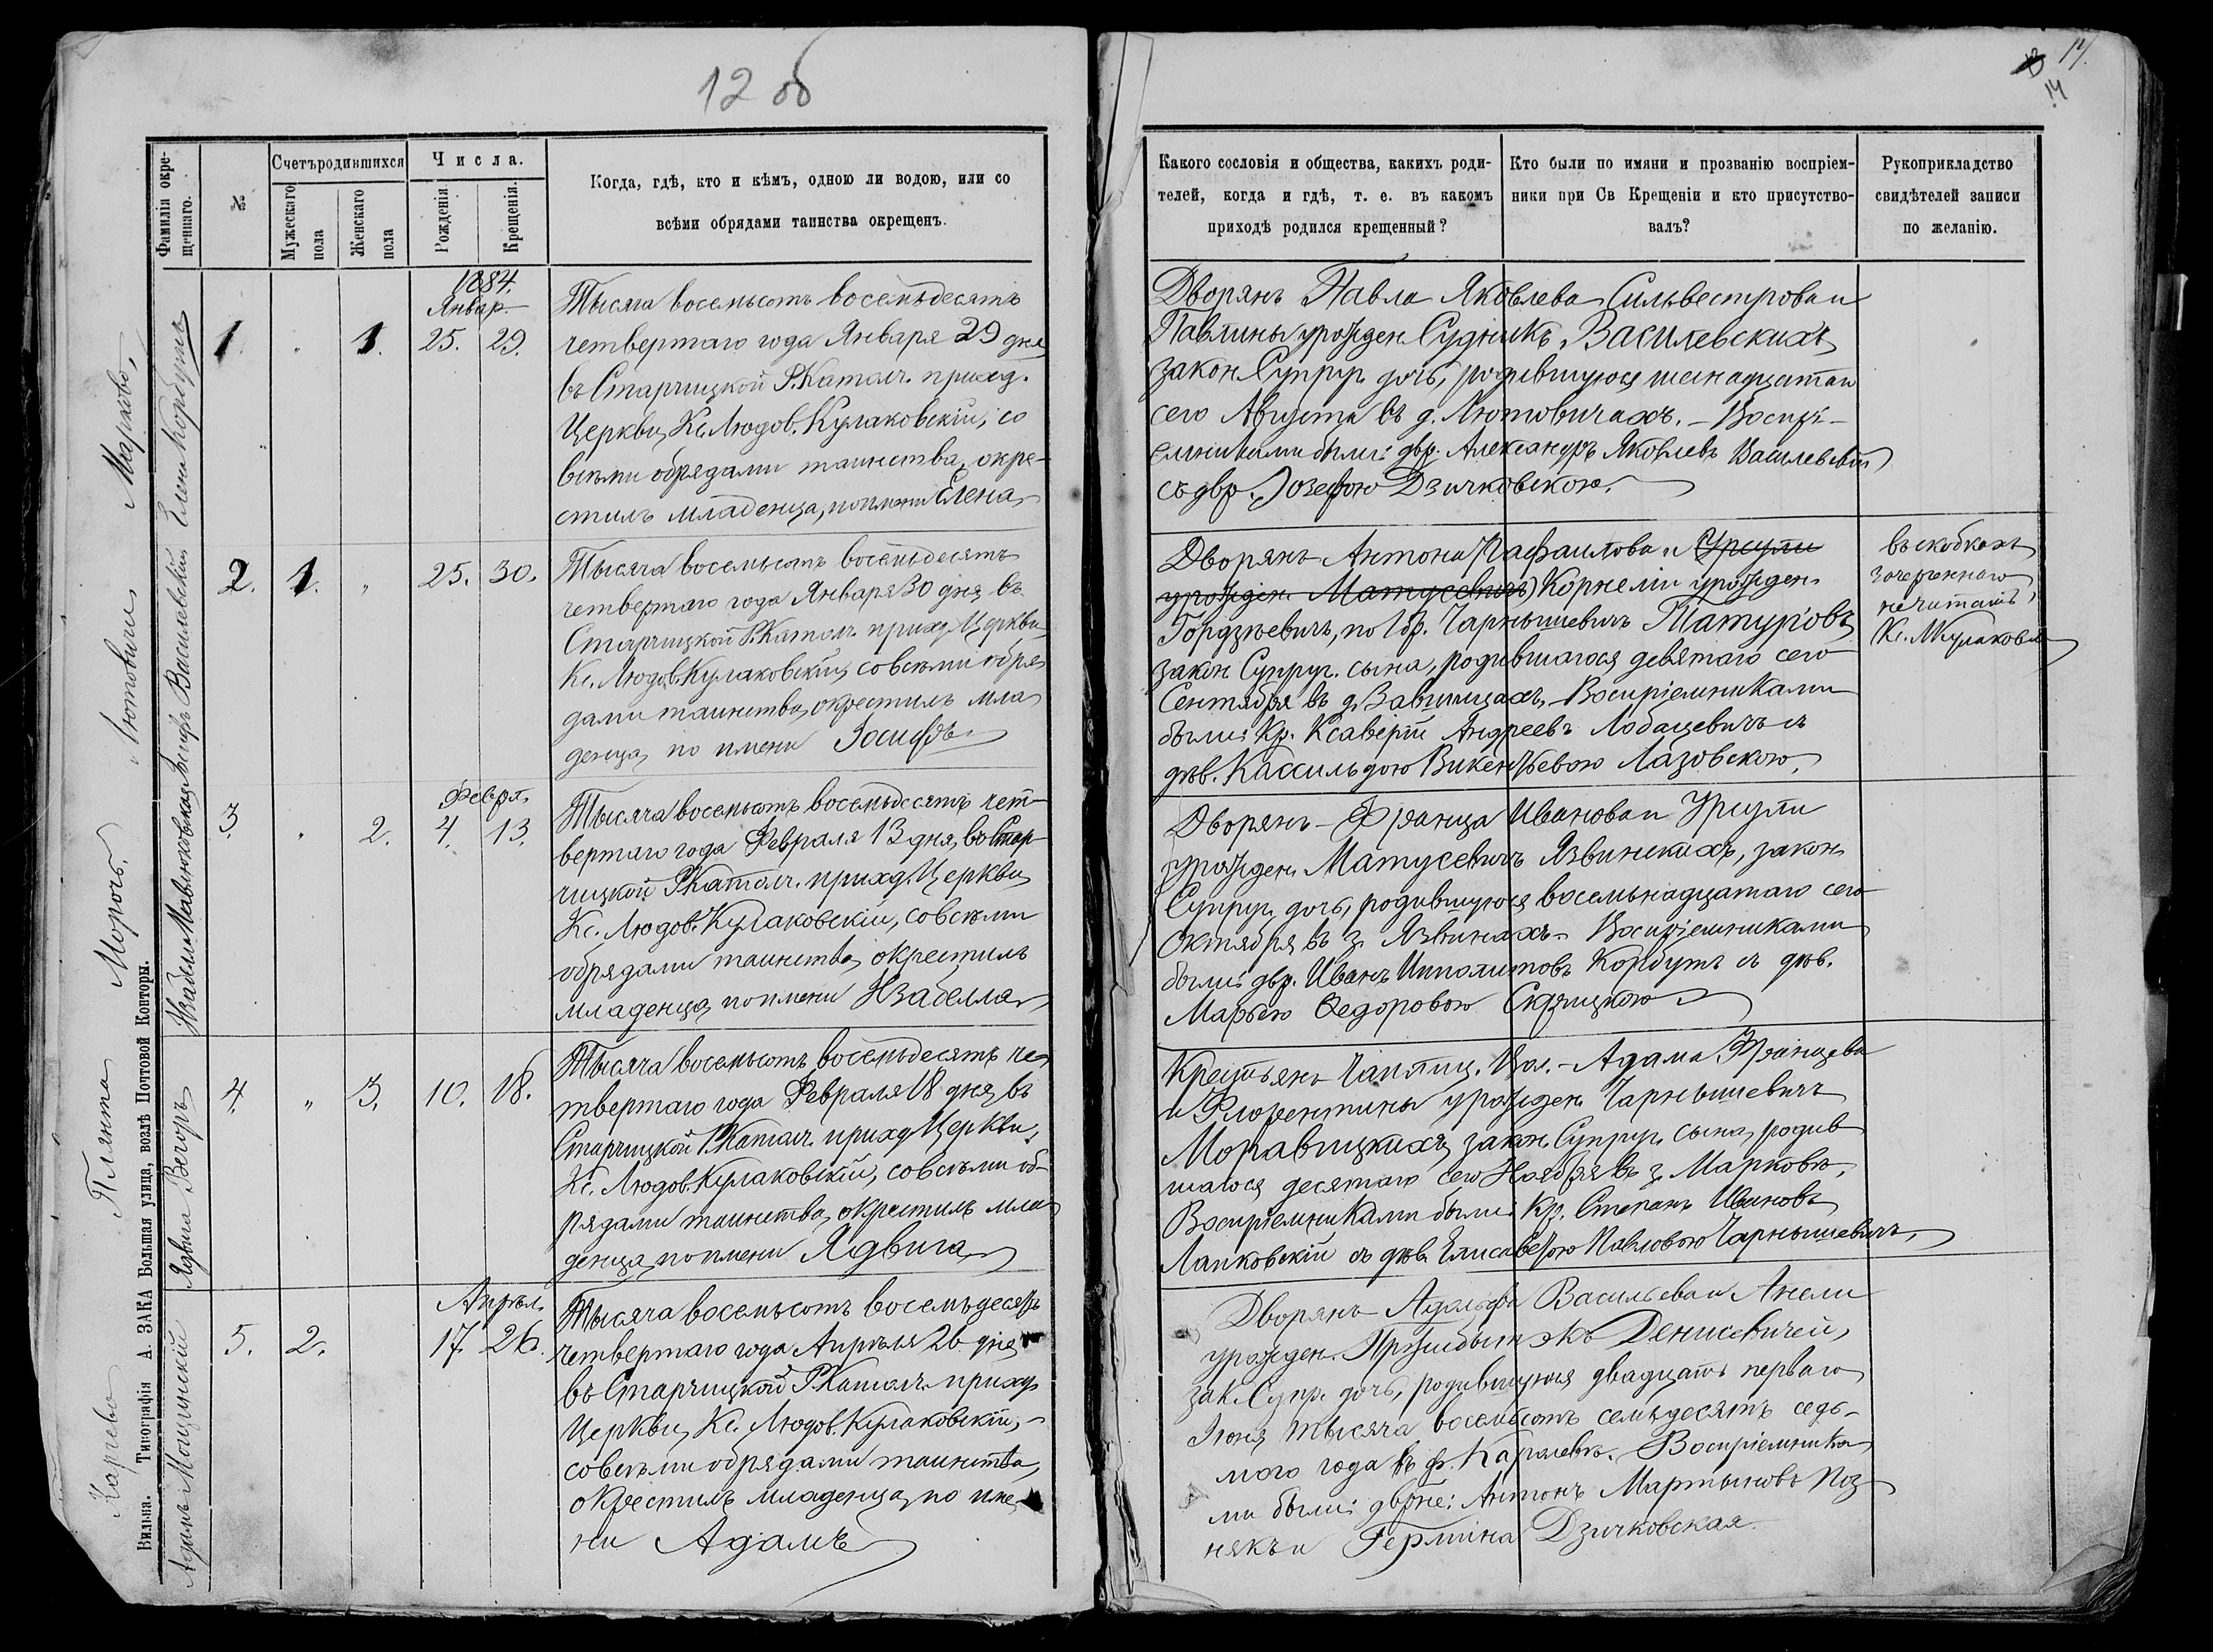 12 об
Фамилія окре-
щеннаго.
№
Счетъ родившихся
Мужескаго
пола
Женскаго
пола
Числа.
Рожденія
Крещенія.
Когда, гдѣ, кто и кѣмъ, одною ли водою, или со
всѣми обрядами таинства окрещенъ.
Марково,
Лютовичи
Морочь.
Плянта
Карчево
Вильна. Типографія А. ЗАКА Большая улица, возлѣ Почтовой Конторы.
Елена Корбутъ
1. " 1.
1884.
Январ.
25. 29.
Тысяча восемьсотъ восемьдесятъ
четвертаго года Января 29 дня
въ Старчицкой Р. Катол. приход.
Церкви, Кс. Людов. Кулаковскій, со
всѣми обрядами таинства, окре-
стилъ младенца, по имени Елена
Іосифъ Василевскій
2. 1. " 25. 30.
Тысяча восемьсотъ восемьдесятъ
четвертаго года Января 30 дня въ
Старчицкой Р. Катол. приход. Церкви
Кс. Людов. Кулаковскій, со всѣми обря
дами таинства, окрестилъ мла
денца, по имени Іосифъ
Изабелла
3. " 2.
Февр.
4. 13.
Тысяча восемьсотъ восемьдесятъ чет-
вертаго года Февраля 13 дня, въ Стар-
чицкой Р. Катол. приход. Церкви
Кс. Людов. Кулаковскій, со всѣми
обрядами таинства, окрестилъ
младенца, по имени Изабелла
Ядвига Вегоръ
4. " 3. 10. 18.
Тысяча восемьсотъ восемьдесятъ че
твертаго года Февраля 18 дня, въ
Старчицкой Р. Катол. приход. Церкви,
Кс. Людов. Кулаковскій, со всѣми об-
рядами таинства, окрестилъ мла
денца, по имени Ядвига
Адамъ Мощинскій
5. 2.
Апрѣл.
17. 26.
Тысяча восемьсотъ восемьдесятъ
четвертаго года Апрѣля 26 дня
въ Старчицкой Р. Катол. приход
Церкви, Кс. Людов. Кулаковскій, -
со всѣми обрядами таинства,
окрестилъ младенца, по име
ни Адамъ
14
Какого сословія и общества, какихъ роди-
телей, когда и гдѣ, т. е. въ какомъ
приходѣ родился крещенный?
Кто были по имяни и прозванію воспріем-
ники при Св Крещеніи и кто присутство-
валъ?
Рукоприкладство
свидѣтелей записи
по желанію.
Дворянъ Павла Яковлева Сильвестрова и
Павлины урожден. Судникъ, Василевскихъ
закон. Супруг. дочь, родившуюся
сего Августа въ д. Лютовичахъ. - Воспрі-
емниками были: двр. Александръ Яковлевъ Василевскій
съ двр. Іозефою Дзичковскою.
Дворянъ - Антона Рафаилова и (Урсули
урожден. Матусевичъ) Корнеліи урожден.
Гордзѣевичъ, по Чарнышевичъ
закон. Супруг. сына, родившагося девятаго сего
Сентября въ д. Воспріемниками
были: Кр. Ксаверій Андреевъ Лобацевичъ съ
дѣв. Кассильдою Викентьевою Лазовскою.
въ скобкахъ
зачеркнаго
не читать,
Кс.
Дворянъ - Франца Иванова и Урсули
урожден. Матусевичъ Язвинскихъ, закон.
Супруг. дочь, родившуюся восемьнадцатаго сего
Октября въ з. Язвинахъ - Воспріемниками
были: двр. Иванъ Ипполитовъ Корбутъ съ дѣв.
Марьею Ѳедоровою
Крестьянъ - Адама Францева
и Флорентины урожден. Чарнышевичъ
Моравицкихъ, закон. Супруг. сына, родив
шагося десятаго сего Ноября въ з. Марковѣ,
Воспріемниками были: Кр. Степанъ Ивановъ
Лапковскій съ дѣв. Елисаветою Павловою Чарнышевичъ,
Дворянъ - Адольфа Васильева и Анели
урожден. Пржибытэкъ Денисевичей,
зак. Супр. дочь, родившуюся двадцать перваго
Іюня тысяча восемьсотъ семьдесятъ седь-
мого года въ ф. Воспріемника
ми были: дврне: Антонъ Мартыновъ Поз
някъ и Гермина Дзичковская.